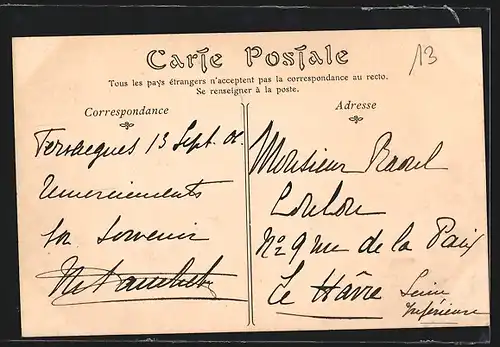 Carte Postale
13
Tous les pays étrangers n'acceptent pas la correspondance au recto.
Se renseigner à la poste.
Correspondance
13 Sept.
Remerciements
bon Souvenir
Adresse
Monsieur Raoul
Loulou
No 9 rue de la Paix
Le Hâvre Seine
Inférieure